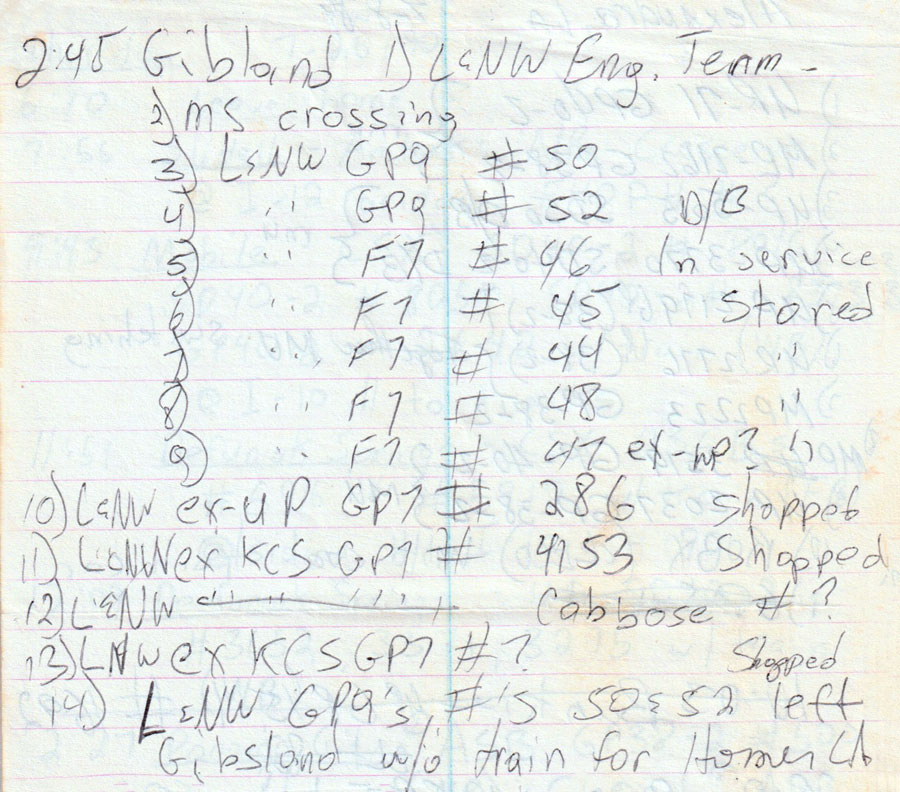 2:45 Gibland 1) L&NW Eng. Term -
2) MS crossing
3) L&NW GP9 # 50
4) " GP9 # 52 D/B
5) " F7 # 46 In service
6) " F7 # 45 Stored
7) " F7 # 44 "
8) " F7 # 48 "
9) " F7 # 47 ex-WP? "
10) L&NW ex-UP GP7 # 286 Shopped
11) L&NW ex KCS GP7 # 4153 Shopped
12) L&NW Cabbose # ?
13) LNW ex KCS GP7 # ? Shopped
14) L&NW GP9's, #'s 50 & 52 left
Gibsland w/o train for Homer